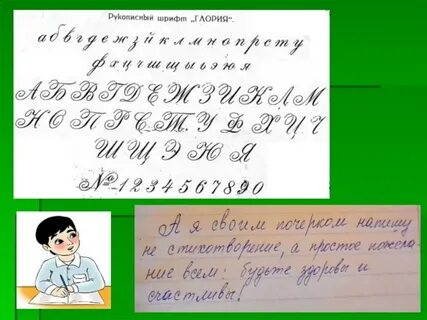 Рукописный шрифт „ГЛОРИЯ".
абвгдежзйклмнопрсту
фхцчшщыьэюя
АБВГДЕЖЗИКЛМ
НОПРСТУФХЦЧ
ШЩЭЮЯ
№1234567890
А я своим почерком напишу
не стихотворение, а простое пожела-
ние всем: будьте здоровы и
счастливы!